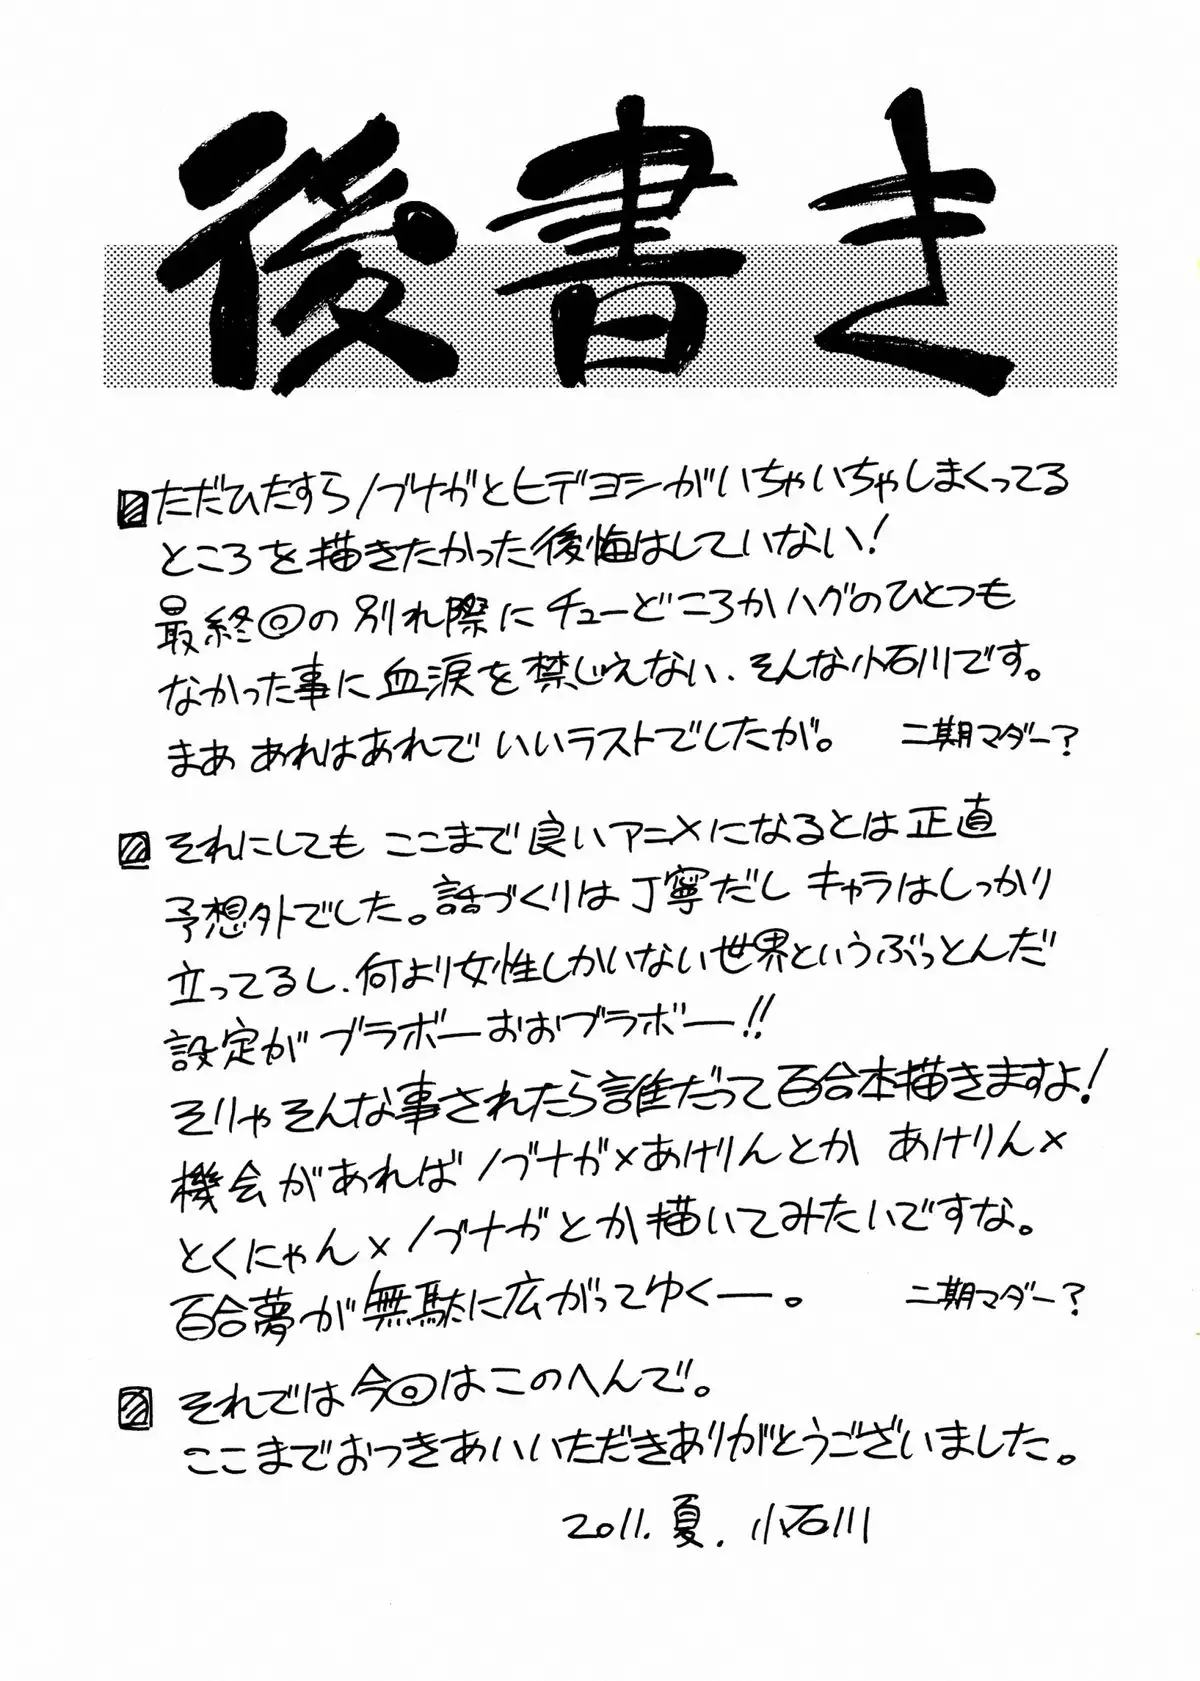 後書き
ただひたすらノブナガとヒデヨシがいちゃいちゃしまくってる
ところを描きたかった後悔はしていない!
最終回の別れ際にチューどころかハグのひとつも
なかった事に血涙を禁じえない、そんな小石川です。
まああれはあれでいいラストでしたが。 二期マダー?
それにしても ここまで良いアニメになるとは正直
予想外でした。話づくりは丁寧だし キャラはしっかり
立ってるし、何より女性しかいない世界というぶっとんだ
設定がブラボーおおブラボー!!
そりゃそんな事されたら誰だって百合本描きますよ!
機会があればノブナガ×あけりんとか あけりん×
とくにゃん×ノブナガとか描いてみたいですな。
百合夢が無駄に広がってゆくー。 二期マダー?
それでは今回はこのへんで。
ここまでおつきあいいただきありがとうございました。
2011.夏. 小石川